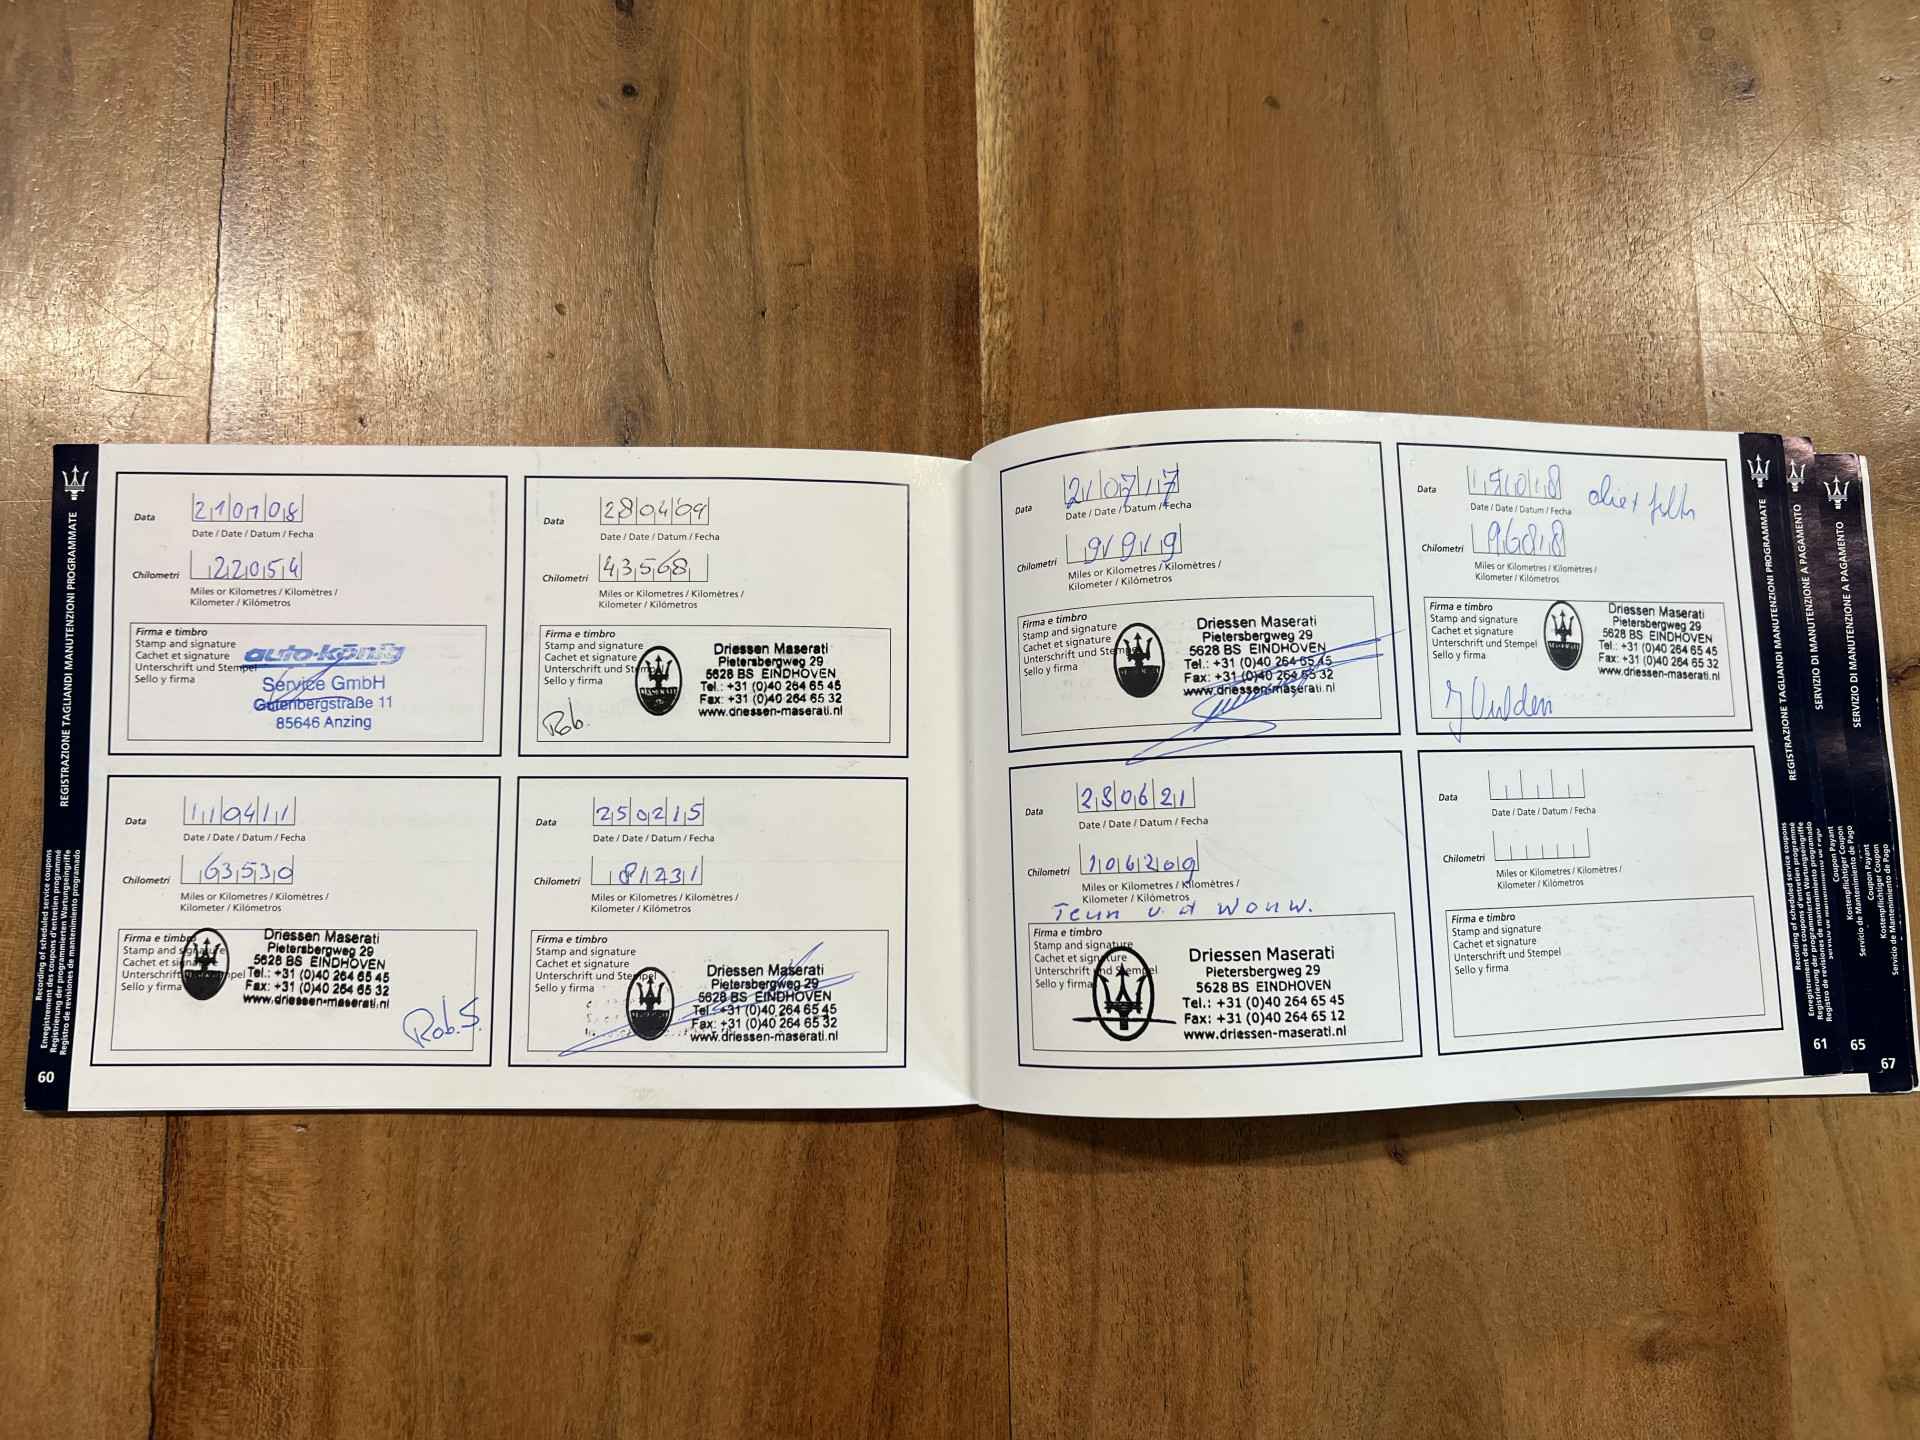 REGISTRAZIONE TAGLIANDI MANUTENZIONI PROGRAMMATE
Recording of scheduled service coupons
Enregistrement des coupons d'entretien programmé
Registrierung der programmierten Wartungseingriffe
Registro de revisiones de mantenimiento programado
60
Data
210108
Date / Date / Datum / Fecha
Chilometri
22054
Miles or Kilometres / Kilomètres /
Kilometer / Kilómetros
Firma e timbro
Stamp and signature
Cachet et signature
Unterschrift und Stempel
Sello y firma
auto-könig
Service GmbH
Gutenbergstraße 11
85646 Anzing
Data
280409
Date / Date / Datum / Fecha
Chilometri
43568
Miles or Kilometres / Kilomètres /
Kilometer / Kilómetros
Firma e timbro
Stamp and signature
Cachet et signature
Unterschrift und Stempel
Sello y firma
Rob.
Driessen Maserati
Pietersbergweg 29
5628 BS EINDHOVEN
Tel.: +31 (0)40 264 65 45
Fax: +31 (0)40 264 65 32
www.driessen-maserati.nl
Data
110411
Date / Date / Datum / Fecha
Chilometri
63530
Miles or Kilometres / Kilomètres /
Kilometer / Kilómetros
Firma e timbro
Stamp and signature
Cachet et signature
Unterschrift und Stempel
Sello y firma
Driessen Maserati
Pietersbergweg 29
5628 BS EINDHOVEN
Tel.: +31 (0)40 264 65 45
Fax: +31 (0)40 264 65 32
www.driessen-maserati.nl
Rob.S.
Data
250215
Date / Date / Datum / Fecha
Chilometri
81231
Miles or Kilometres / Kilomètres /
Kilometer / Kilómetros
Firma e timbro
Stamp and signature
Cachet et signature
Unterschrift und Stempel
Sello y firma
Driessen Maserati
Pietersbergweg 29
5628 BS EINDHOVEN
Tel.: +31 (0)40 264 65 45
Fax: +31 (0)40 264 65 32
www.driessen-maserati.nl
Data
210717
Date / Date / Datum / Fecha
Chilometri
91919
Miles or Kilometres / Kilomètres /
Kilometer / Kilómetros
Firma e timbro
Stamp and signature
Cachet et signature
Unterschrift und Stempel
Sello y firma
Driessen Maserati
Pietersbergweg 29
5628 BS EINDHOVEN
Tel.: +31 (0)40 264 65 45
Fax: +31 (0)40 264 65 32
www.driessen-maserati.nl
Data
Date / Date / Datum / Fecha
Chilometri
Miles or Kilometres / Kilomètres /
Kilometer / Kilómetros
Firma e timbro
Stamp and signature
Cachet et signature
Unterschrift und Stempel
Sello y firma
Driessen Maserati
Pietersbergweg 29
5628 BS EINDHOVEN
Tel.: +31 (0)40 264 65 45
Fax: +31 (0)40 264 65 32
www.driessen-maserati.nl
Data
230621
Date / Date / Datum / Fecha
Chilometri
106209
Miles or Kilometres / Kilomètres /
Kilometer / Kilómetros
Firma e timbro
Stamp and signature
Cachet et signature
Unterschrift und Stempel
Sello y firma
Driessen Maserati
Pietersbergweg 29
5628 BS EINDHOVEN
Tel.: +31 (0)40 264 65 45
Fax: +31 (0)40 264 65 12
www.driessen-maserati.nl
Data
Date / Date / Datum / Fecha
Chilometri
Miles or Kilometres / Kilomètres /
Kilometer / Kilómetros
Firma e timbro
Stamp and signature
Cachet et signature
Unterschrift und Stempel
Sello y firma
REGISTRAZIONE TAGLIANDI MANUTENZIONI PROGRAMMATE
Recording of scheduled service coupons
Enregistrement des coupons d'entretien programmé
Registrierung der programmierten Wartungseingriffe
Registro de revisiones de mantenimiento programado
61
SERVIZIO DI MANUTENZIONE A PAGAMENTO
Coupon Payant
Kostenpflichtiger Coupon
Servicio de Mantenimiento de Pago
65
SERVIZIO DI MANUTENZIONE A PAGAMENTO
Coupon Payant
Kostenpflichtiger Coupon
Servicio de Mantenimiento de Pago
67